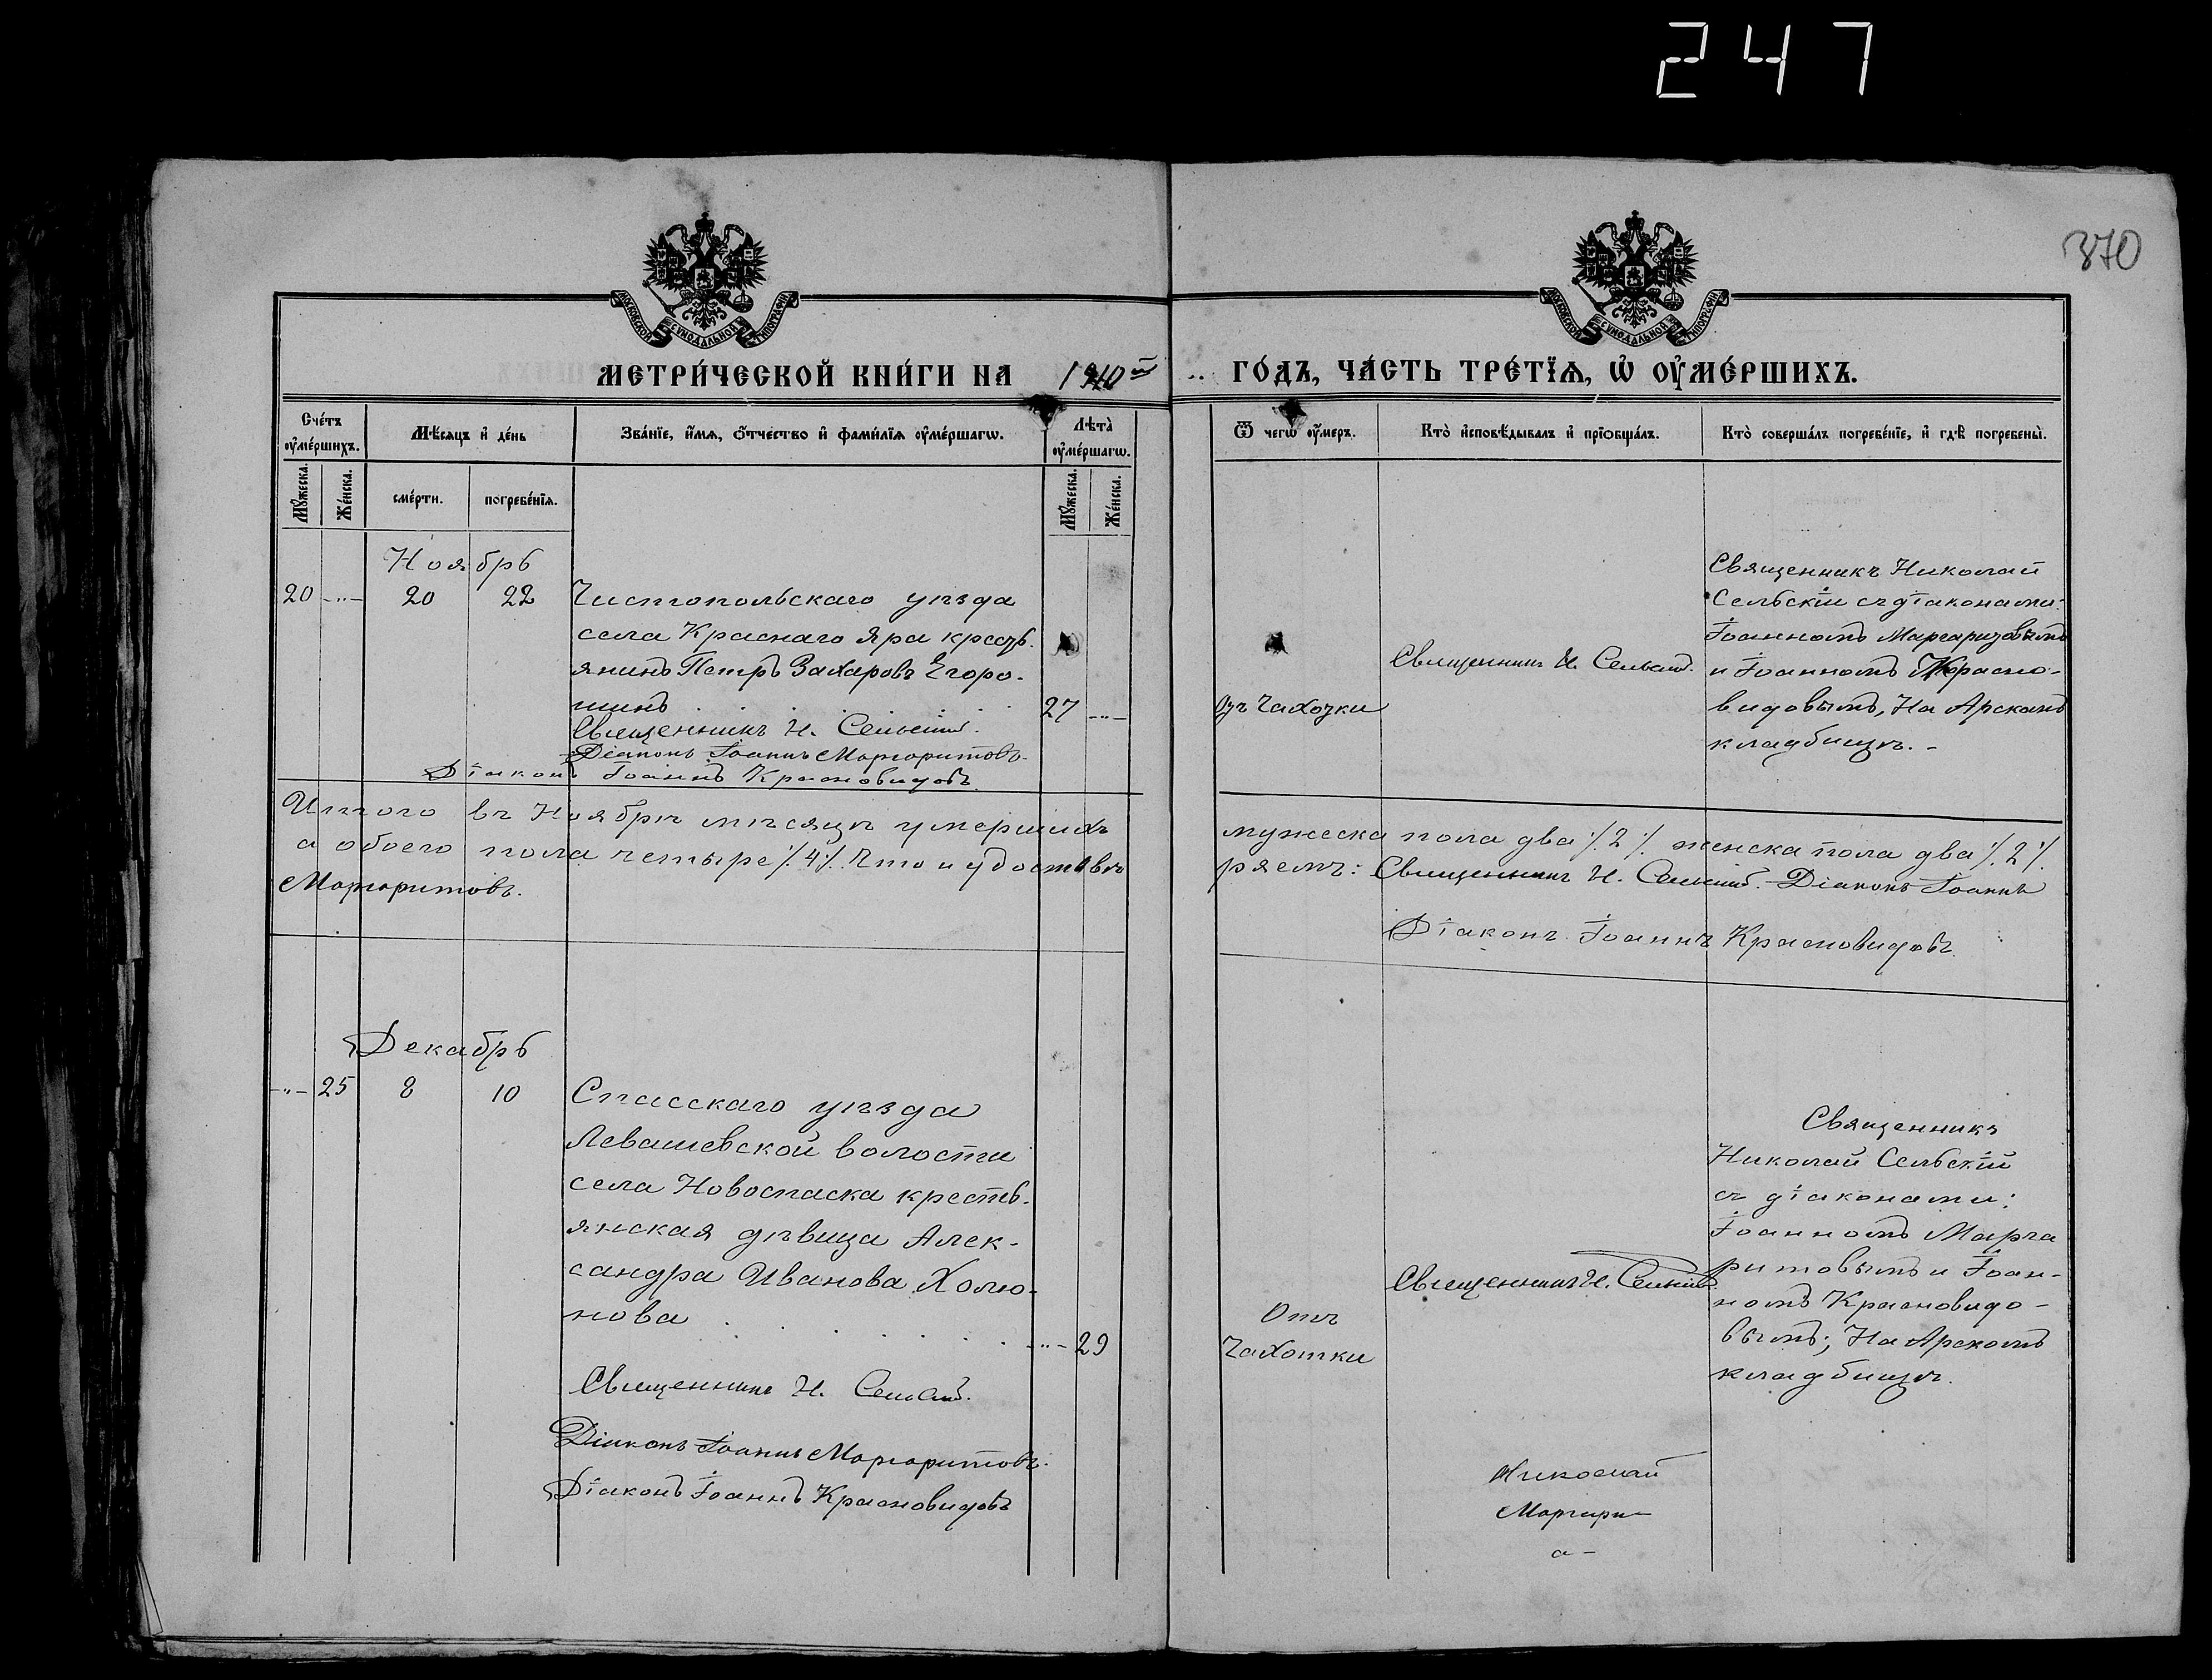 247
370
МОСКОВСКОЙ СѴНОДАЛЬНОЙ ТИПОГРАФІИ
МОСКОВСКОЙ СѴНОДАЛЬНОЙ ТИПОГРАФІИ
МЕТРИ́ЧЕСКОЙ КНИ́ГИ НА 1910 й
ГО́ДЪ, ЧА́СТЬ ТРЕ́ТЇѦ, Ѡ҆ ОУ҆МЕ́РШИХЪ.
Сче́тъ оу҆ме́ршихъ.
Мꙋ́жеска.
Же́нска.
Мѣ́сѧцъ и҆ де́нь
сме́рти.
погребе́нїѧ.
Зва́нїе, и҆́мѧ, ѻ҆́тчество и҆ фами́лїѧ оу҆ме́ршагѡ.
Лѣ̑та̀ оу҆ме́ршагѡ.
Мꙋ́жеска.
Же́нска.
Ѿ чегѡ̀ оу҆́меръ.
Кто̀ и҆сповѣ́дывалъ и҆ прїѡбща́лъ.
Кто̀ соверша́лъ погребе́нїе, и҆ гдѣ̀ погребены̀.
Ноябрь
20 -"- 20 22 Чистопольскаго уѣзда
села Краснаго Яра кресть-
янинъ Петръ Захаровъ Егоро-
шинъ 27 -"-
Священникъ Н. Сельскій.
Діаконъ Іоаннъ Маргаритовъ.
Діаконъ Іоаннъ Красновидовъ.
чахотки
Священникъ Н. Сельскій.
Священникъ Николай
Сельскій съ діаконами:
Іоанномъ Маргаритовымъ
и Іоанномъ Красно-
видовымъ, На Арскомъ
кладбищѣ. -
Итого въ Ноябрѣ мѣсяцѣ умершихъ
мужеска пола два ٪ 2 ٪ женска пола два ٪ 2 ٪
а обоего пола четыре ٪ 4 ٪. Что и удостовѣ
ряемъ: Священникъ Н. Сельскій. Діаконъ Іоаннъ
Маргаритовъ.
Діаконъ Іоаннъ Красновидовъ.
Декабрь
-"- 25 8 10 Спасскаго уѣзда
Левашевской волости
села Новоспаска кресть-
янская дѣвица Алек-
сандра Иванова Холю-
нова -"- 29
Священникъ Н. Сельскій.
Діаконъ Іоаннъ Маргаритовъ.
Діаконъ Іоаннъ Красновидовъ
Отъ
чахотки
Священникъ Н. Сельскій.
Священникъ
Николай Сельскій
съ діаконами:
Іоанномъ Марга
ритовымъ и Іоан-
номъ Красновидо-
вымъ; На Арскомъ
кладбищѣ.
Николай
Маргари-
а -